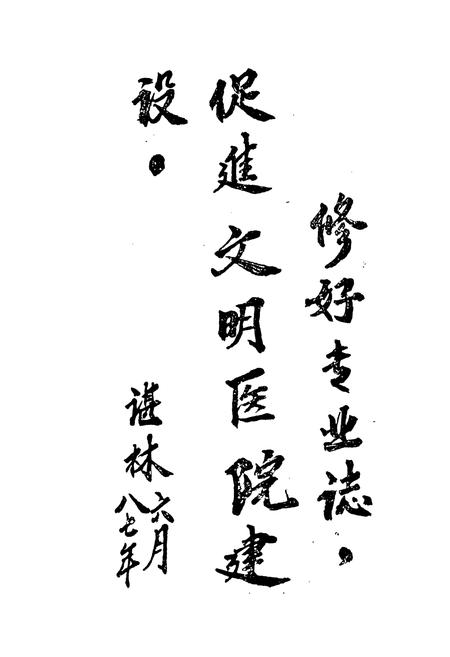 修好专业誌.
促進文明医院建
设.
谌林
八七年
六月